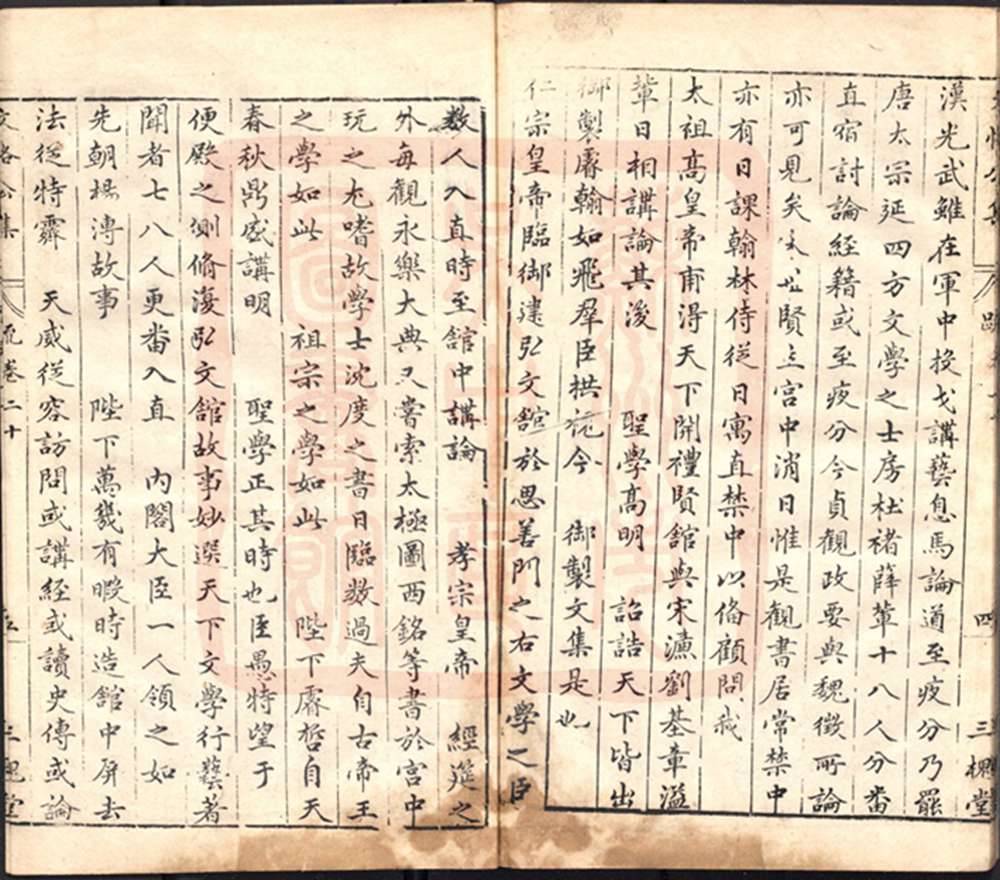 四 三槐堂
漢光武雖在軍中投戈講藝息馬論道至疲分乃罷
唐太宗延四方文學之士房杜褚薛輩十八人分畨
直宿討論經籍或至夜分今貞觀政要與魏徵所論
亦可見矣宋世賢主宫中消日惟是觀書居常禁中
亦有日課翰林侍從日寓直禁中以俻顧問我
太祖髙皇帝甫得天下開禮賢舘與宋濂劉基章溢
輩日相講論其後 聖學髙明 詔誥天下皆出
御製睿翰如飛羣臣拱視今 御製文集是也
仁宗皇帝臨御建弘文舘於思善門之右文學之臣
数人入直時至舘中講論 孝宗皇帝 經筵之
外每觀永樂大典又嘗索太極圖西銘等書於宫中
玩之尤嗜故學士沈度之書日臨数過夫自古帝王
之學如此 祖宗之學如此 陛下睿哲自天
春秋鼎盛講明 聖學正其時也臣愚特望于
便殿之側脩復弘文舘故事妙選天下文學行藝著
聞者七八人更畨入直 内閣大臣一人領之如
先朝楊溥故事 陛下萬幾有暇時造舘中屏去
法從特霽 天威從容訪問或講經或讀史傳或論
文恪公集 卷二十 五 三槐堂